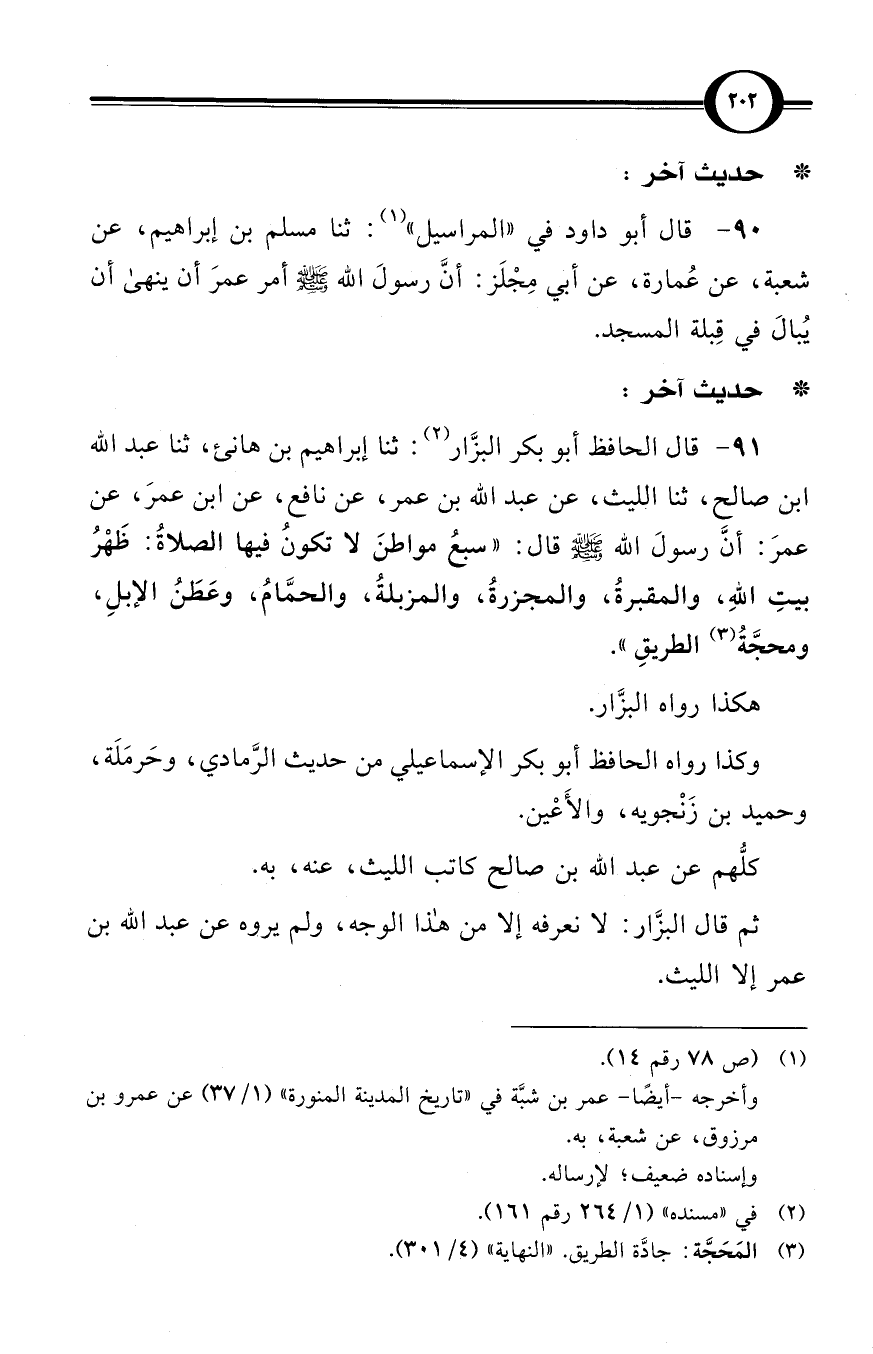 ٢٠٢
* حديث آخر :
٩٠- قال أبو داود في «المراسيل»(١): ثنا مسلم بن إبراهيم، عن
شعبة، عن عُمارة، عن أبي مِجْلَز: أنَّ رسولَ الله ﷺ أمر عمرَ أن ينهىٰ أن
يُبالَ في قِبلة المسجد.
* حديث آخر :
٩١- قال الحافظ أبو بكر البزَّار(٢): ثنا إبراهيم بن هانئ، ثنا عبد الله
ابن صالح، ثنا الليث، عن عبد الله بن عمر، عن نافع، عن ابن عمرَ، عن
عمرَ: أنَّ رسولَ الله ﷺ قال: «سبعُ مواطنَ لا تكونُ فيها الصلاةُ: ظَهْرُ
بيتِ اللهِ، والمقبرةُ، والمجزرةُ، والمزبلةُ، والحمَّامُ، وعَطَنُ الإبلِ،
ومحجَّةُ(٣) الطريقِ».
هكذا رواه البزَّار.
وكذا رواه الحافظ أبو بكر الإسماعيلي من حديث الرَّمادي، وحَرمَلَة،
وحميد بن زَنْجويه، والأَعْين.
كلُّهم عن عبد الله بن صالح كاتب الليث، عنه، به.
ثم قال البزَّار: لا نعرفه إلا من هٰذا الوجه، ولم يروه عن عبد الله بن
عمر إلا الليث.
(١) (ص ٧٨ رقم ١٤).
وأخرجه -أيضًا- عمر بن شبَّة في «تاريخ المدينة المنورة» (١/ ٣٧) عن عمرو بن
مرزوق، عن شعبة، به.
وإسناده ضعيف؛ لإرساله.
(٢) في «مسنده» (١/ ٢٦٤ رقم ١٦١).
(٣) المَحَجَّة: جادَّة الطريق. «النهاية» (٤/ ٣٠١).